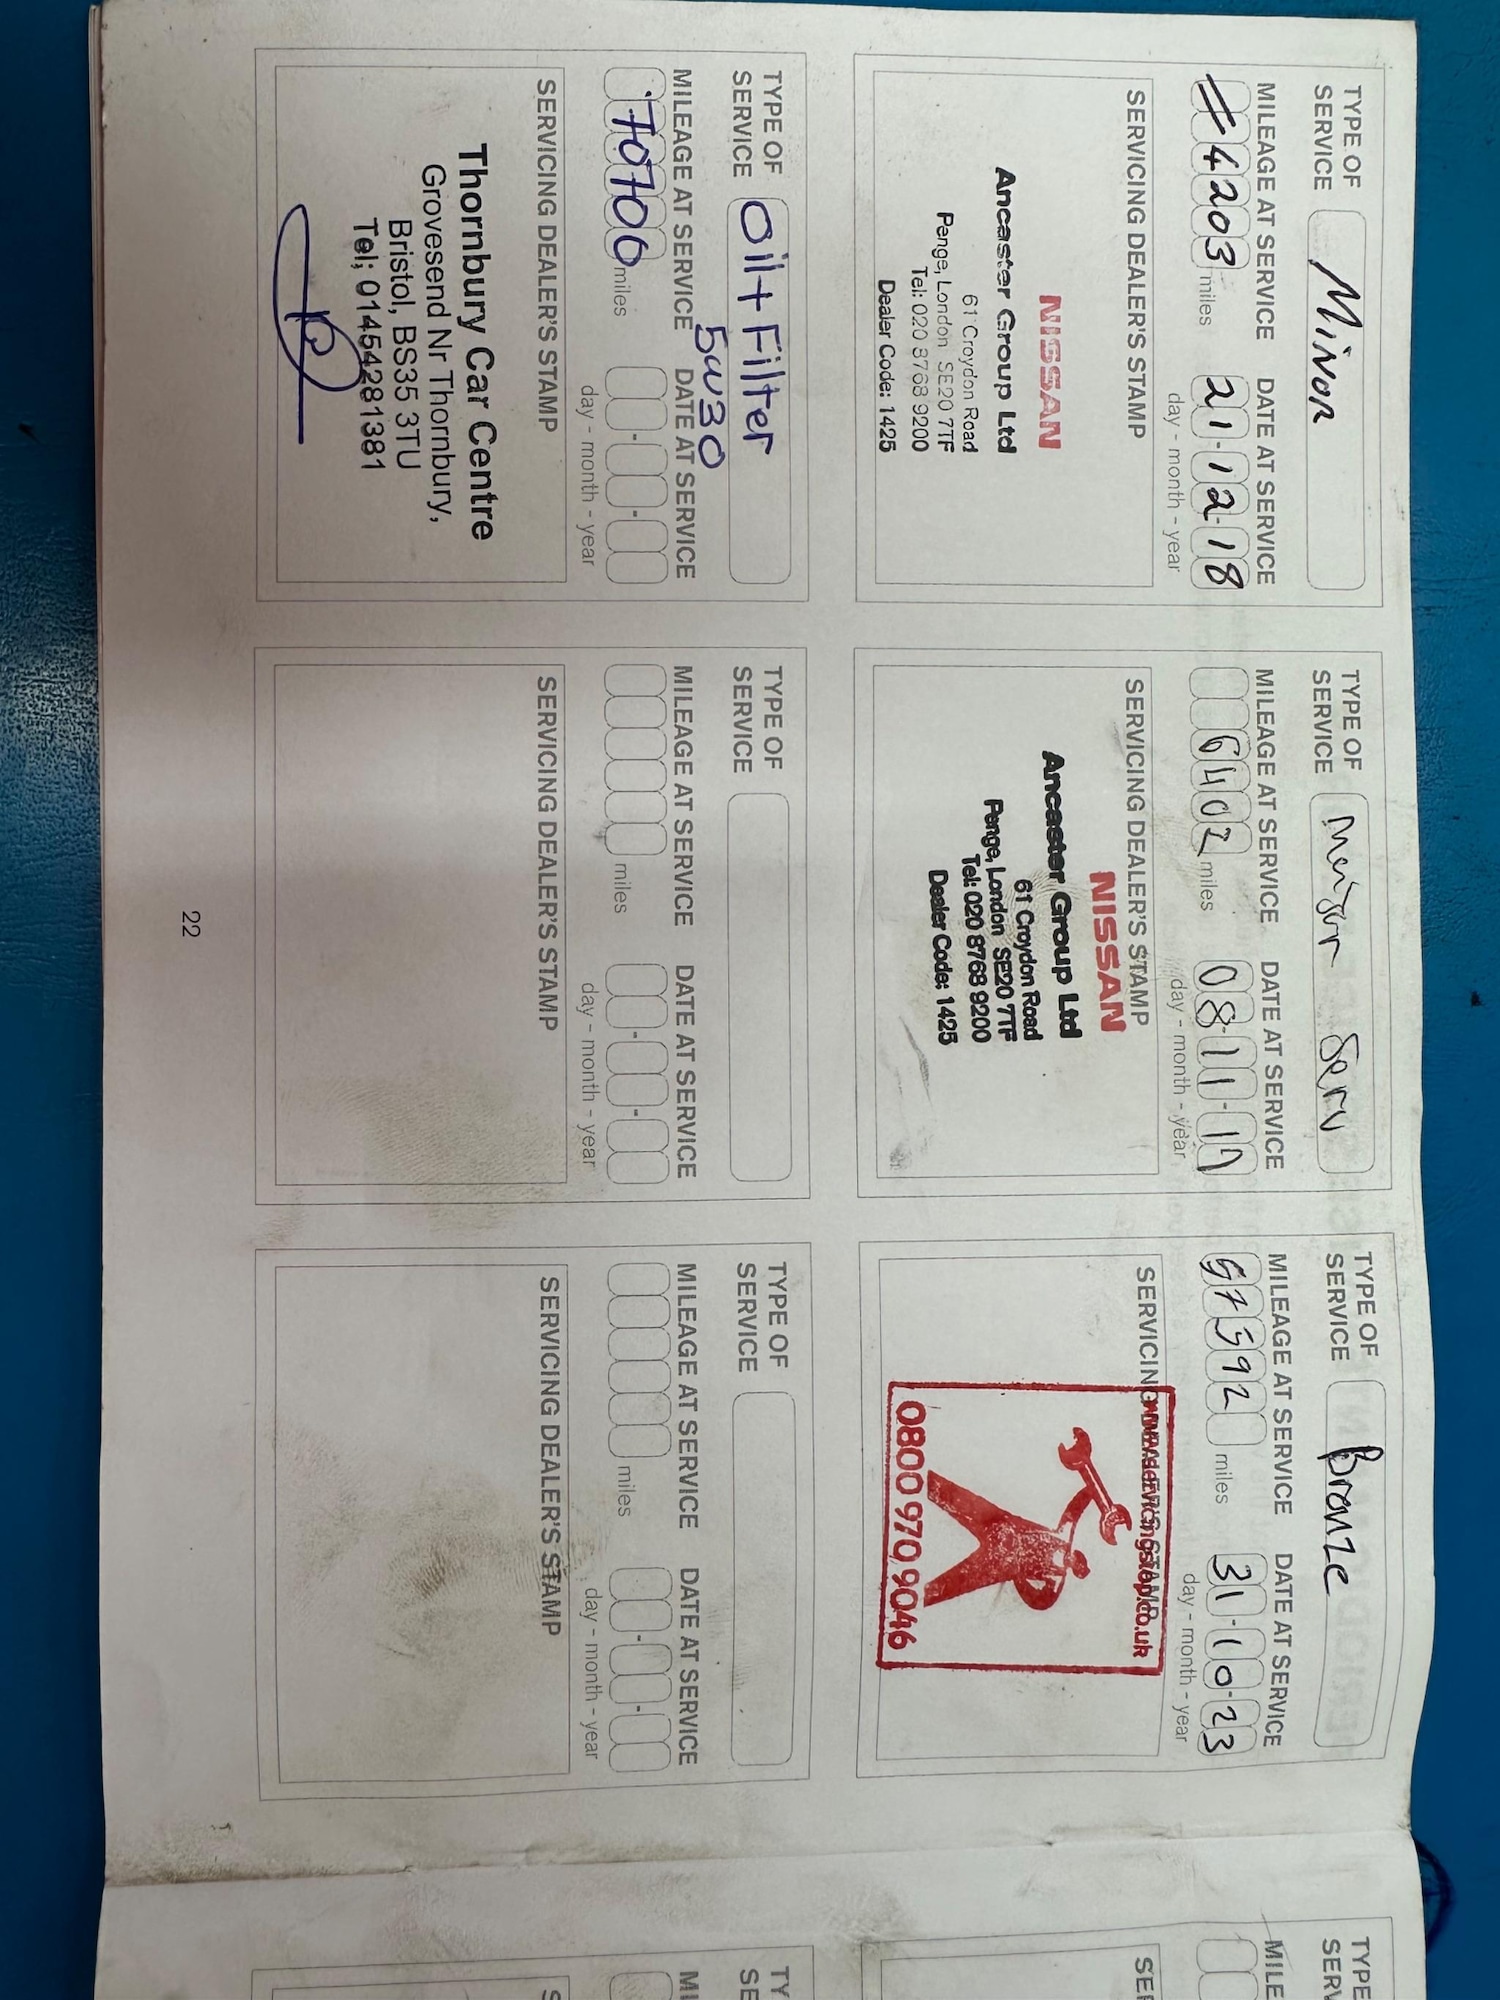 TYPE OF
SERVICE
Minor
MILEAGE AT SERVICE
DATE AT SERVICE
4203 miles
21-12-18
day - month - year
SERVICING DEALER'S STAMP
NISSAN
Ancaster Group Ltd
61 Croydon Road
Penge, London SE20 7TF
Tel: 020 8768 9200
Dealer Code: 1425
TYPE OF
SERVICE
Serv
MILEAGE AT SERVICE
DATE AT SERVICE
6402 miles
08-11-19
day - month - year
SERVICING DEALER'S STAMP
NISSAN
Ancaster Group Ltd
61 Croydon Road
Penge, London SE20 7TF
Tel: 020 8768 9200
Dealer Code: 1425
TYPE OF
SERVICE
Bronze
MILEAGE AT SERVICE
DATE AT SERVICE
miles
31-10-23
day - month - year
SERVICING DEALER'S STAMP
0800 970 9046
TYPE OF
SERVICE
Oil + Filter
5W30
MILEAGE AT SERVICE
DATE AT SERVICE
70706 miles
day - month - year
SERVICING DEALER'S STAMP
Thornbury Car Centre
Grovesend Nr Thornbury,
Bristol, BS35 3TU
Tel; 01454281381
TYPE OF
SERVICE
MILEAGE AT SERVICE
DATE AT SERVICE
miles
day - month - year
SERVICING DEALER'S STAMP
TYPE OF
SERVICE
MILEAGE AT SERVICE
DATE AT SERVICE
miles
day - month - year
SERVICING DEALER'S STAMP
22
TYPE
SERV
MILE
SER
TY
SE
MI
S